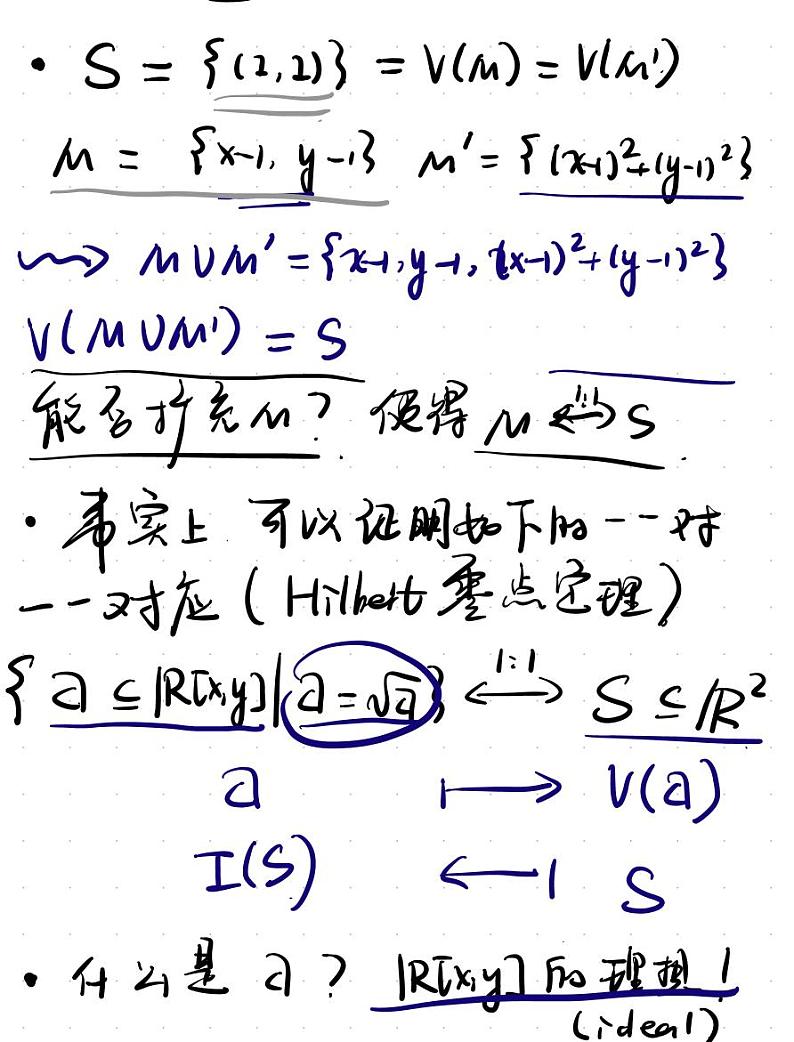 • S = {(1,1)} = V(M) = V(M')
M = {x-1, y-1} M' = {(x-1)²+(y-1)²}
⇝ M∪M' = {x-1, y-1, (x-1)²+(y-1)²}
V(M∪M') = S
能否扩充M? 使得 M ⟷ S 1:1
• 事实上 可以证明如下的一一对
一一对应 (Hilbert 零点定理)
{a ⊆ ℝ[x,y] | a = √a} ⟷ S ⊆ ℝ² 1:1
a ⟼ V(a)
I(S) ⟻ S
• 什么是 a? ℝ[x,y] 的理想!
(ideal)